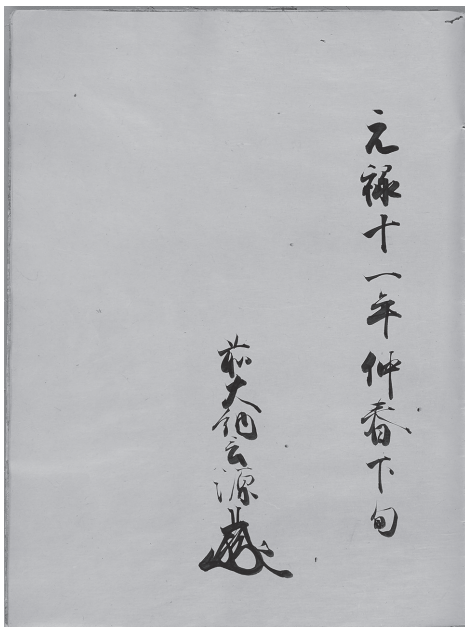 元禄十一年仲春下旬
前大納言源